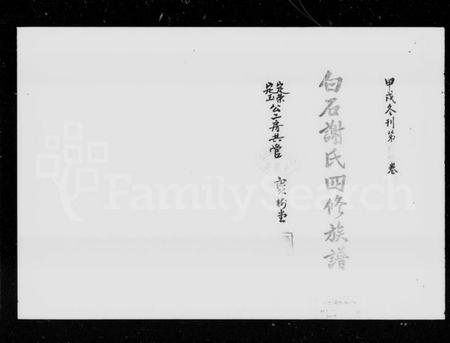 甲戌冬刊第 卷
白石謝氏四修族譜
公二房共管 寶樹堂
FamilySearch